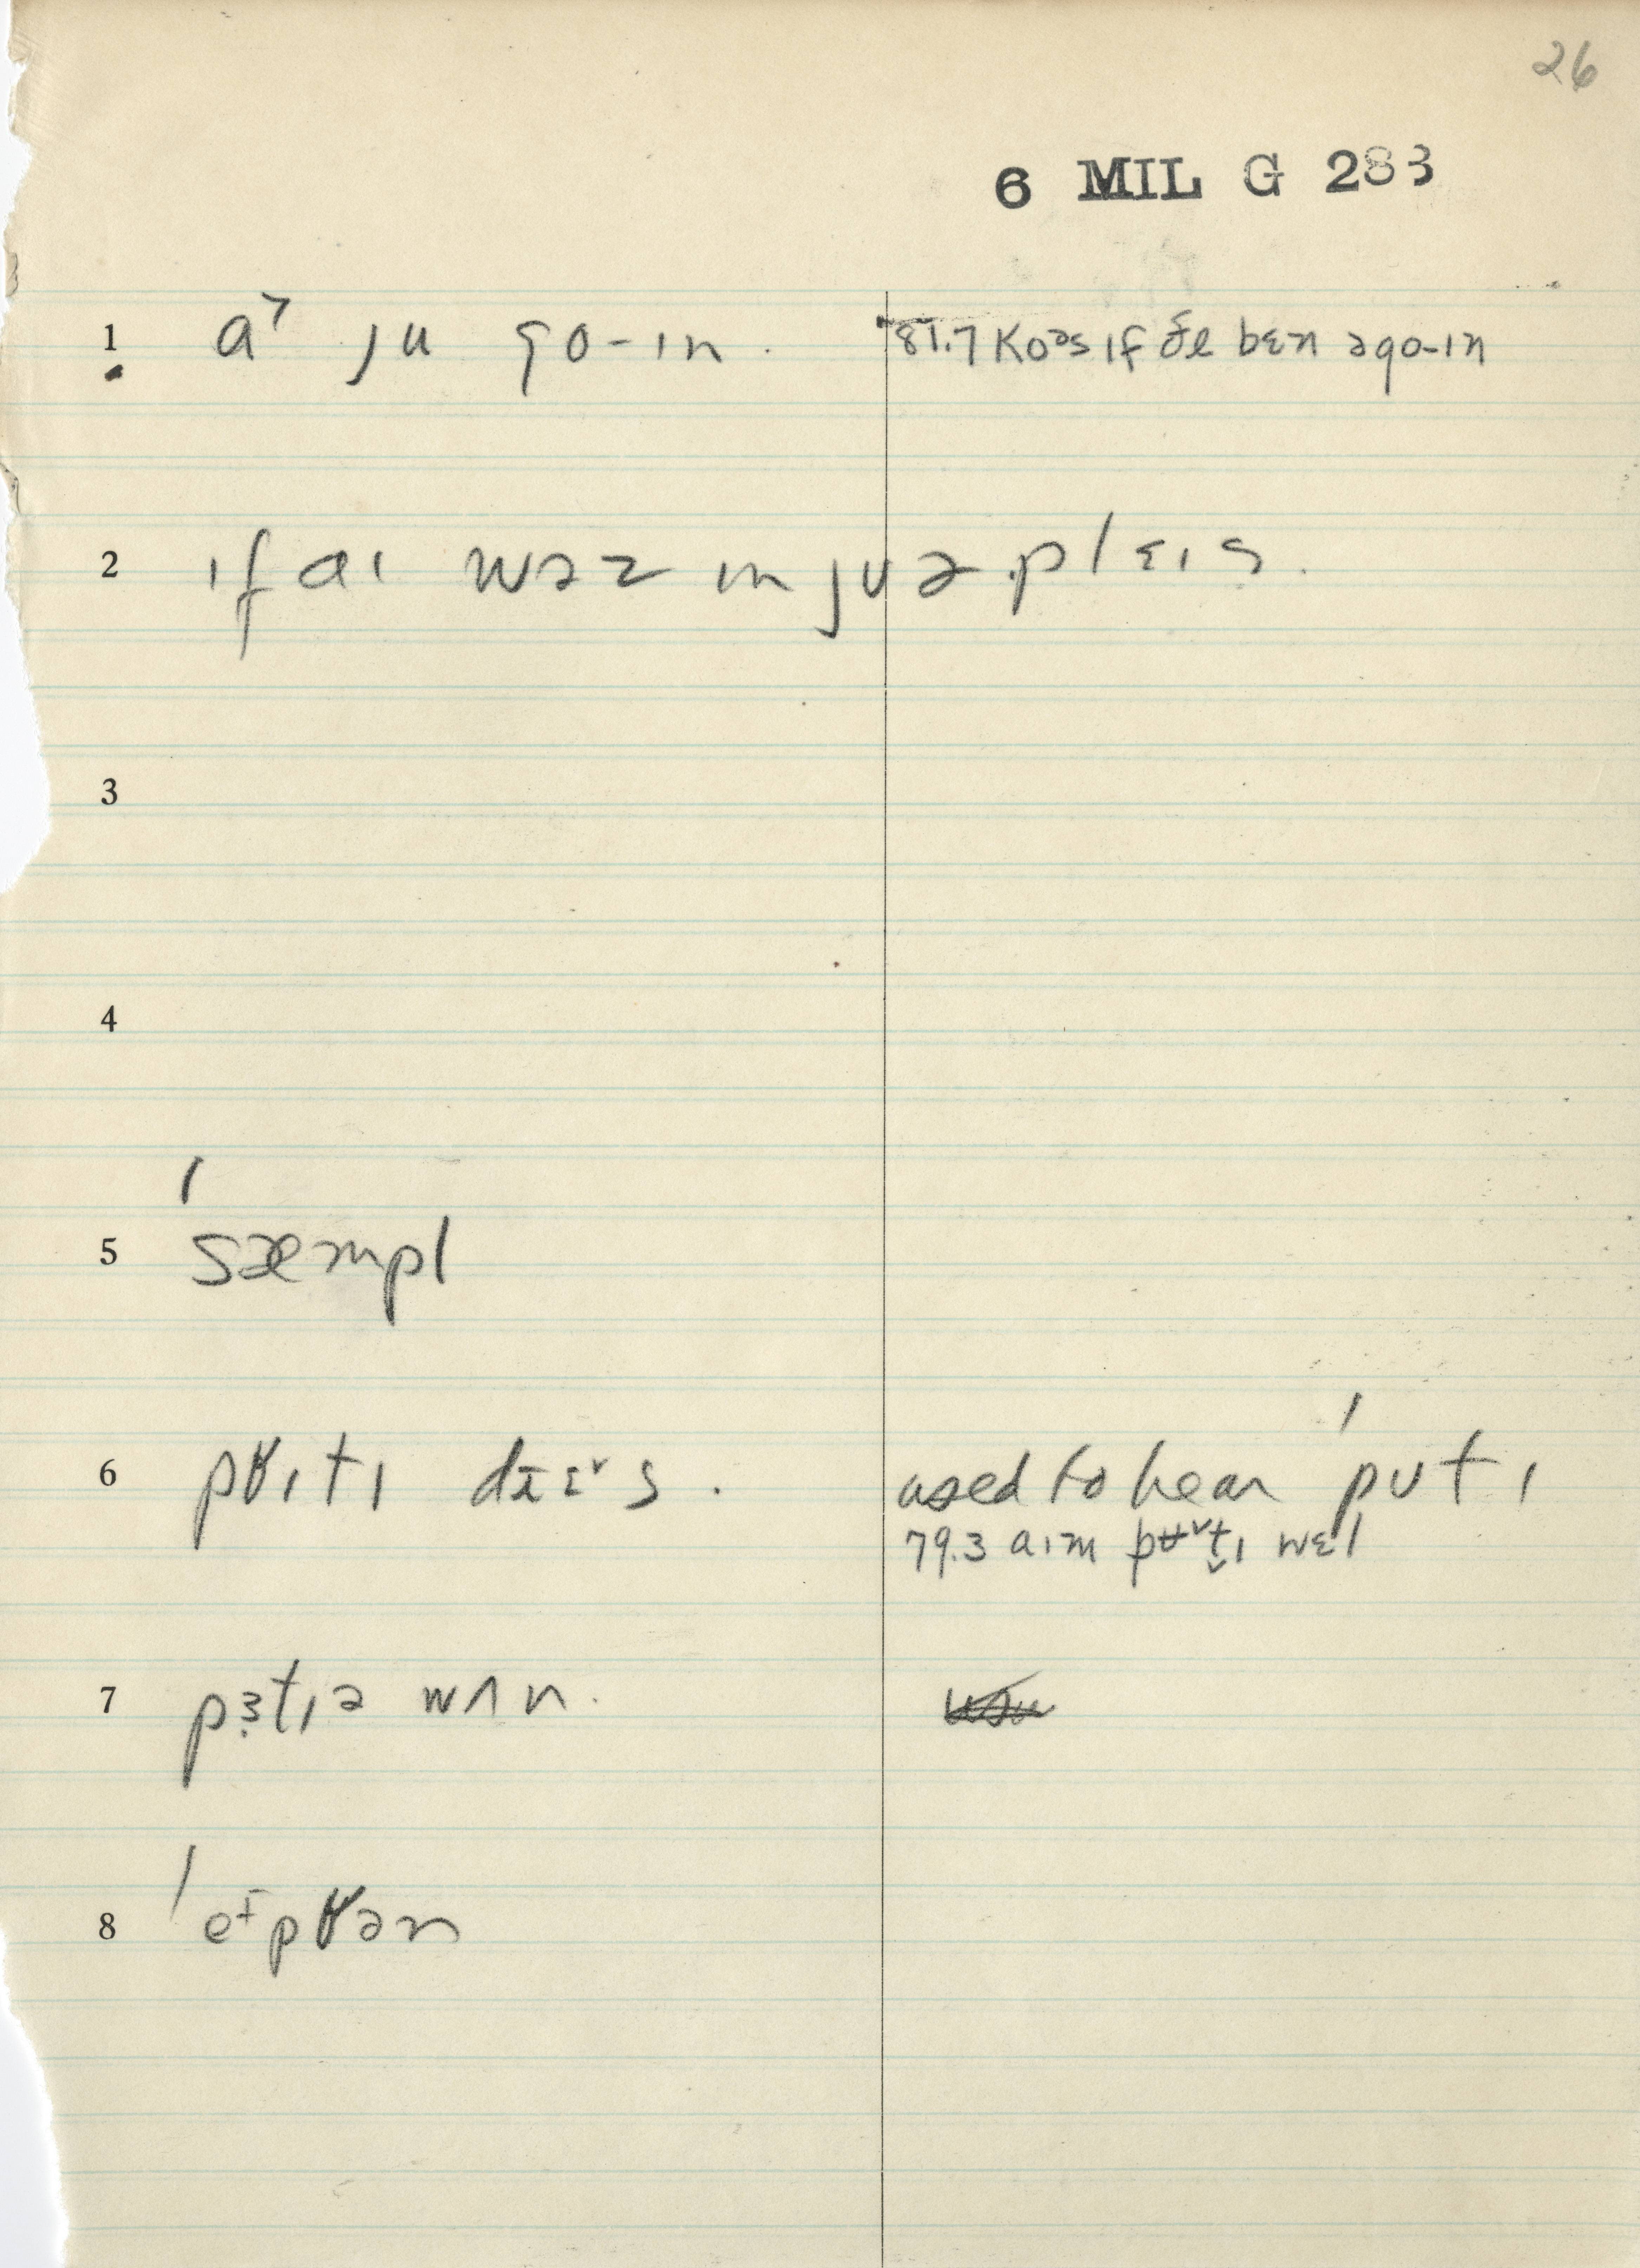 26
6 MIL G 283
1 a˃ ju go-ɪn. 81.7 Koᵊs ɪf ðe bɛn əgo-ɪn
2 ɪf aɪ wəz ɪn jʊə plɛɪs.
3
4
5 ˈsæmpl
6 ɪtɪ s. used to hear ˈpʊtɪ
79.3 aɪm wɛl
7 pɜ̣tɪə wʌn.
8